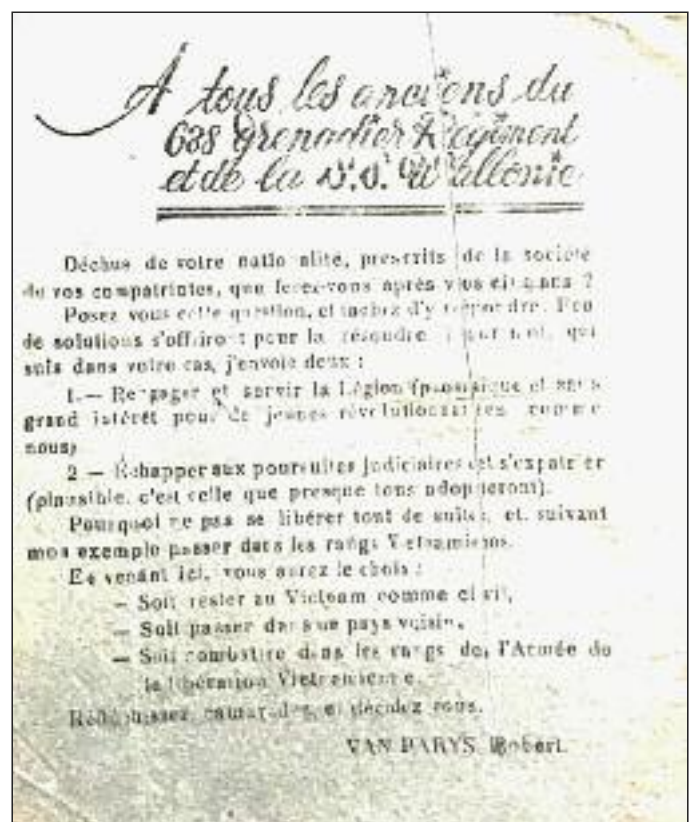 A tous les anciens du
638 Grenadier Régiment
et de la Wallonie
Déchus de votre natio alité, proscrits de la société
de vos compatriotes, que ferez-vous après vos cinq ans ?
Posez vous cette question, et tachez d'y répondre. Peu
de solutions s'offriront pour la résoudre ; pour moi, qui
suis dans votre cas, j'envoie deux :
1.— Rengager et servir la Légion ( et sans
grand intérêt pour de jeunes révolutionnaires comme
nous)
2 — Échapper aux poursuites judiciaires et s'expatrier
(plausible, c'est celle que presque tous adopteront).
Pourquoi ne pas se libérer tout de suite, et, suivant
mon exemple passer dans les rangs Vietnamiens.
En venant ici, vous aurez le choix :
— Soit rester au Vietnam comme civil,
— Soit passer dans un pays voisin,
— Soit combattre dans les rangs de l'Armée de
la libération Vietnamienne.
Réfléchissez, camarades, et décidez vous.
VAN PARYS Robert.